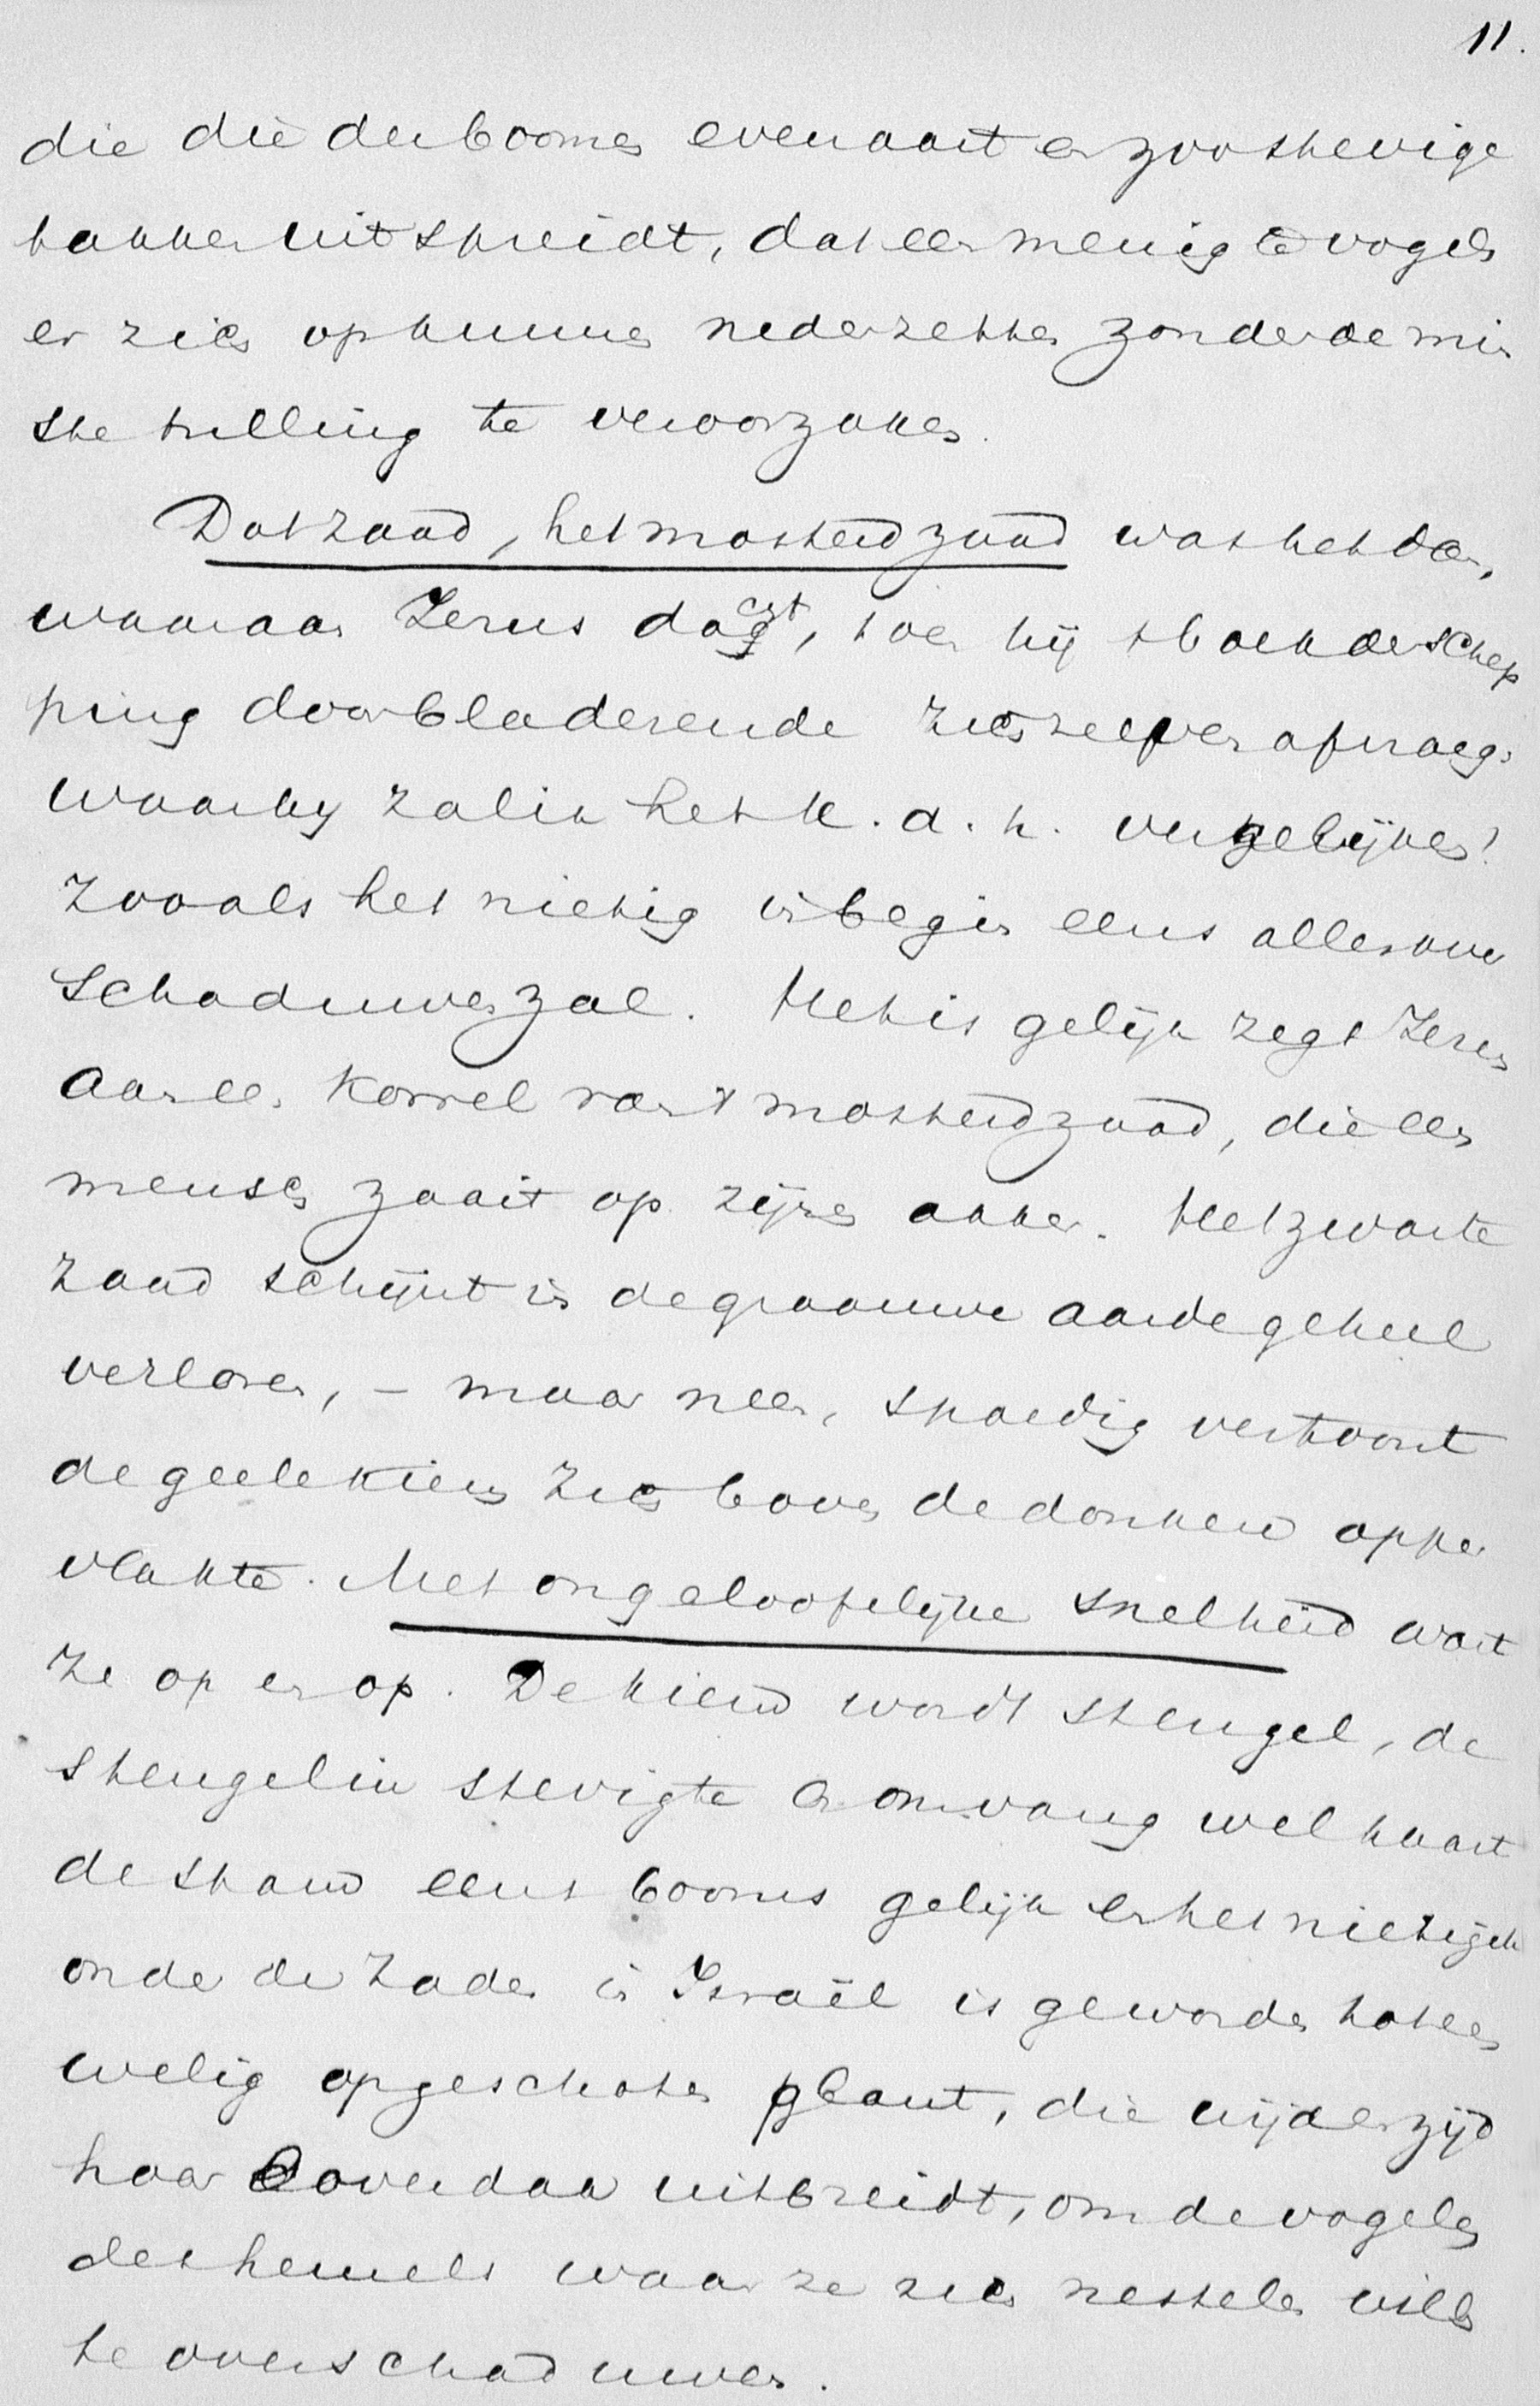 11.
die die der boomen evenaart en zoo stevige
takken uitspreidt, dat een menigte vogels
er zich op kunnen nederzetten zonder de min
ste trilling te veroorzaken.
Dat zaad, het mosterdzaad was het dan,
waaraan Jezus dacht, toen hij 't boek der schep
ping doorbladerende zich zelven afvraag:
waarbij zal ik het k. d. h. vergelijken!
Zooals het nietig in begin eens alles over
schaduwen zal. Het is gelijk zegt Jezus
aan een korrel van 't mosterdzaad, die een
mensch zaait op zijnen akker. Het zwarte
zaad schijnt in de graauwe aarde geheel
verloren, – maar neen, spoedig vertoont
de geele kiem zich boven de donkere opper
vlakte. Met ongeloofelijke snelheid wast
ze op en op. De kiem wordt stengel, de
stengel in stevigte en omvang welhaast
de stam eens booms gelijk en het nietigste
onder de zaden in Israël is geworden tot een
welig opgeschoten plant, die wijd en zijd
haar looverdak uitbreidt, om de vogelen
des hemels waar ze zich nestelen willen
te overschaduwen.